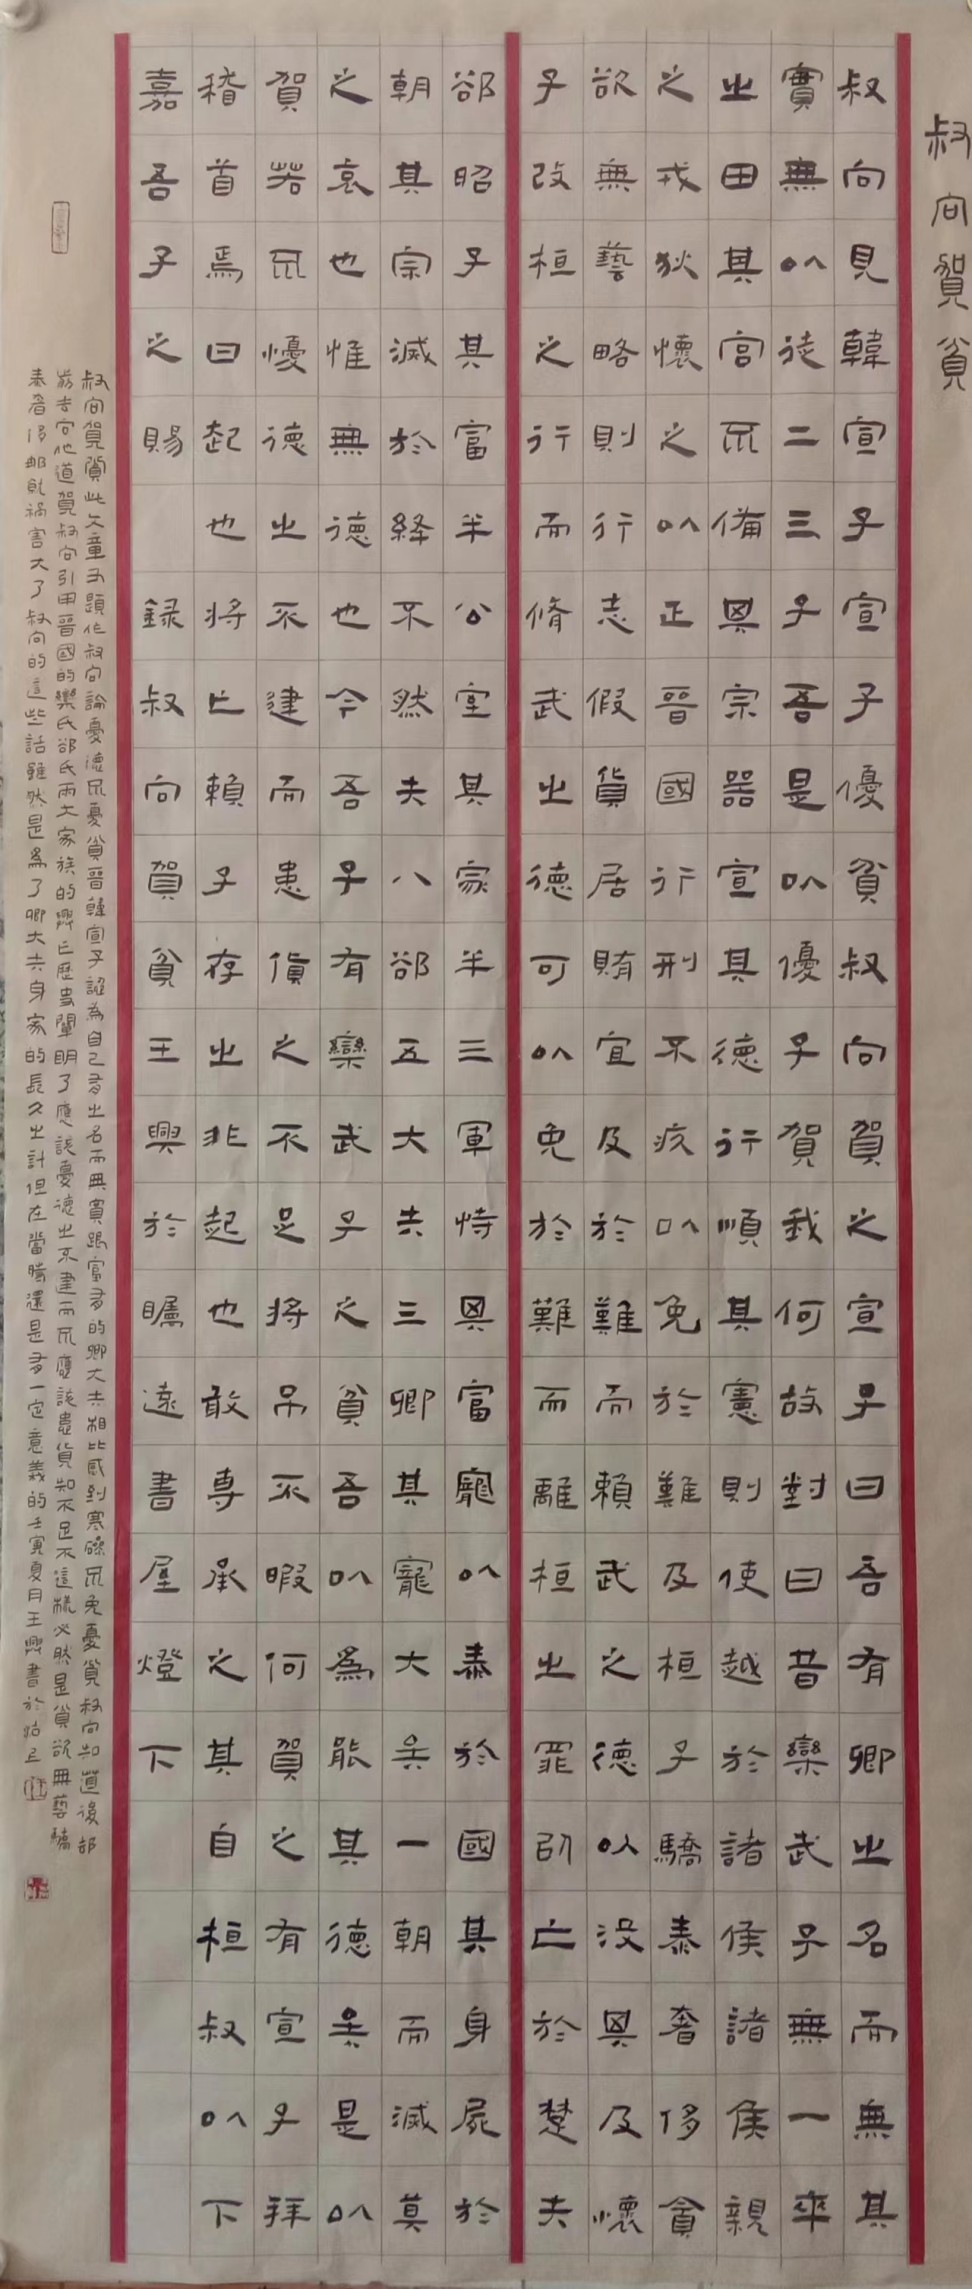 叔向賀貧
叔向見韓宣子宣子優貧叔向賀之宣子曰吾有卿之名而無其
實無以從二三子吾是以優子賀我何故對曰昔欒武子無一卒
之田其宮不備其宗器宣其德行順其憲則使越於諸侯諸侯親
之戎狄懷之以正晉國行刑不疚以免於難及桓子驕泰奢侈貪
欲無藝略則行志假貨居賄宜及於難而賴武之德以沒其及懷
子改桓之行而脩武之德可以免於難而離桓之罪以亡於楚夫
郤昭子其富半公室其家半三軍恃其富寵以泰於國其身屍於
朝其宗滅於絳不然夫八郤五大夫三卿其寵大矣一朝而滅莫
之哀也惟無德也今吾子有欒武子之貧吾以為能其德矣是以
賀若不懮德之不建而患貨之不足將吊不暇何賀之有宣子拜
稽首焉曰起也將亡賴子存之非起也敢專承之其自桓叔以下
嘉吾子之賜 錄叔向賀貧王興於矚遠書屋燈下
叔向賀貧此文章又題作叔向論憂德不憂貧晉韓宣子認為自己有之名而無實跟富有的卿大夫相比感到寒磣不免憂貧叔向知道後卻
前去向他道賀叔向引用晉國的欒氏郤氏兩大家族的興亡歷史闡明了應該憂德之不建而不應該患貨知不足不這樣必然是貧欲無藝驕
泰奢侈那就禍害大了叔向的這些話雖然是為了卿大夫身家的長久之計但在當時還是有一定意義的壬寅夏月王興書於